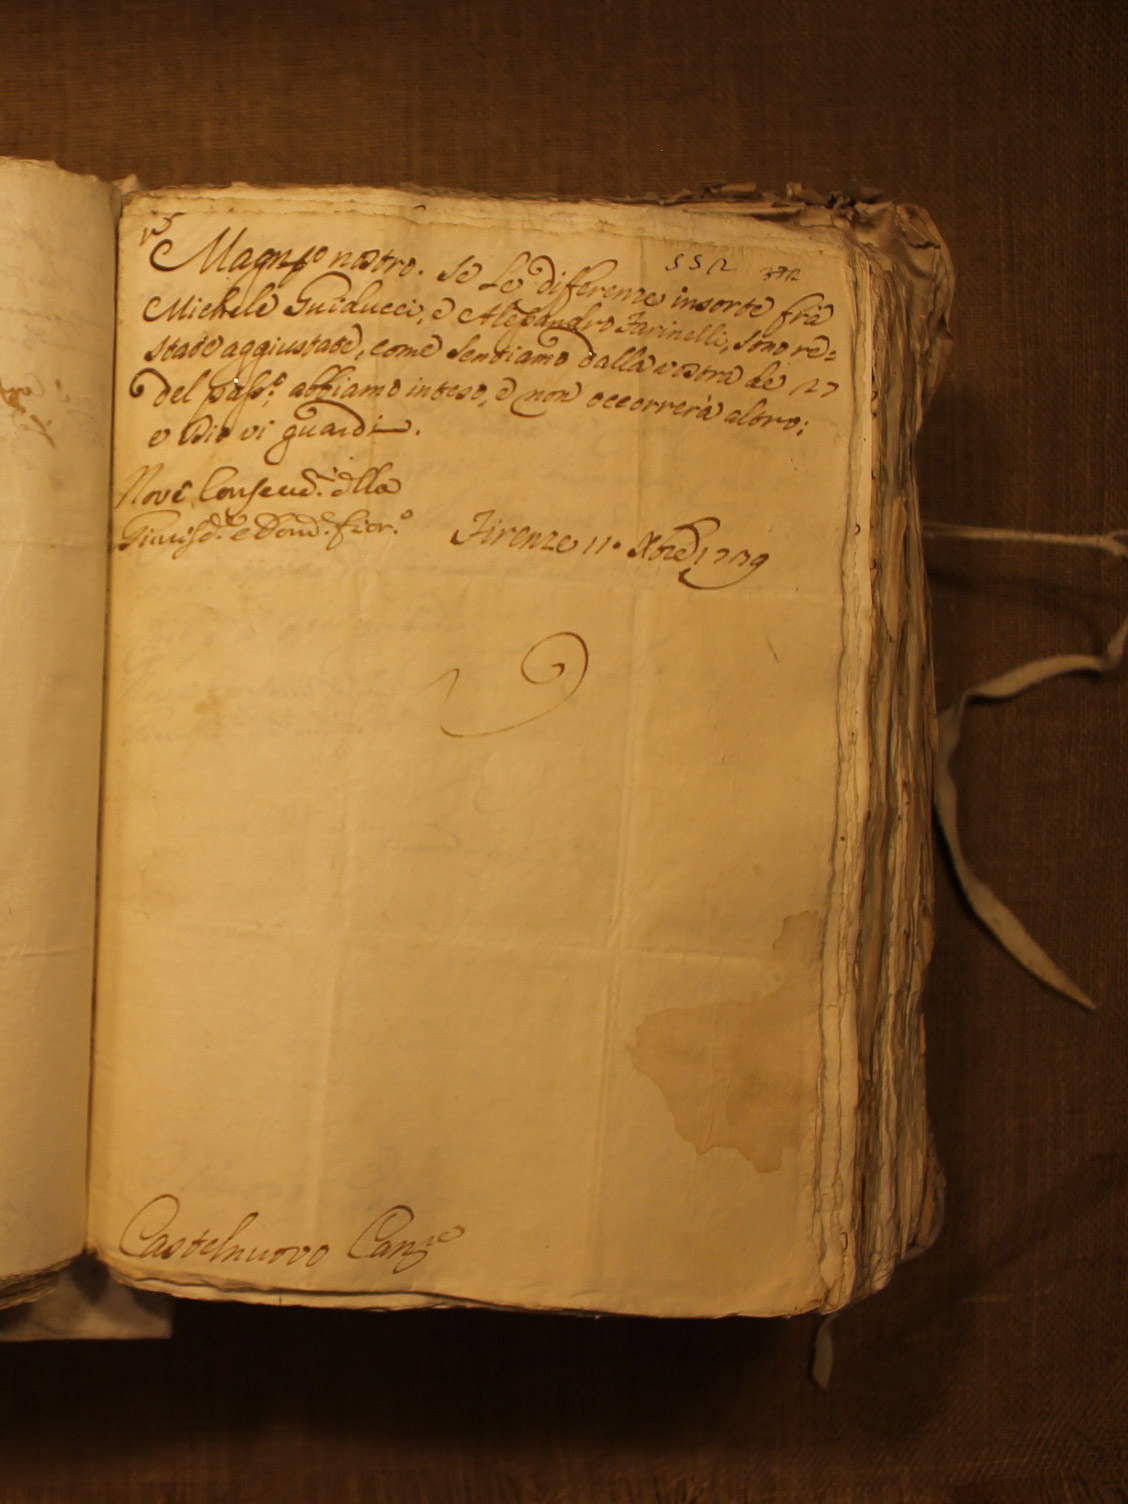 552
Magn.co nostro. Se Le diferenze insorte frà
Michele Guiducci, e Alessandro Farinelli, sono re=
state aggiustate, come sentiamo dalla vostra de 27
del pass.o abbiamo inteso, e non occorrerà altro;
e Dio vi guardi.
Nove Conseud.i della
Giurisd.e e Dom.o fior.o
Firenze 11. Xbre 1779
Castelnuovo Canc.re